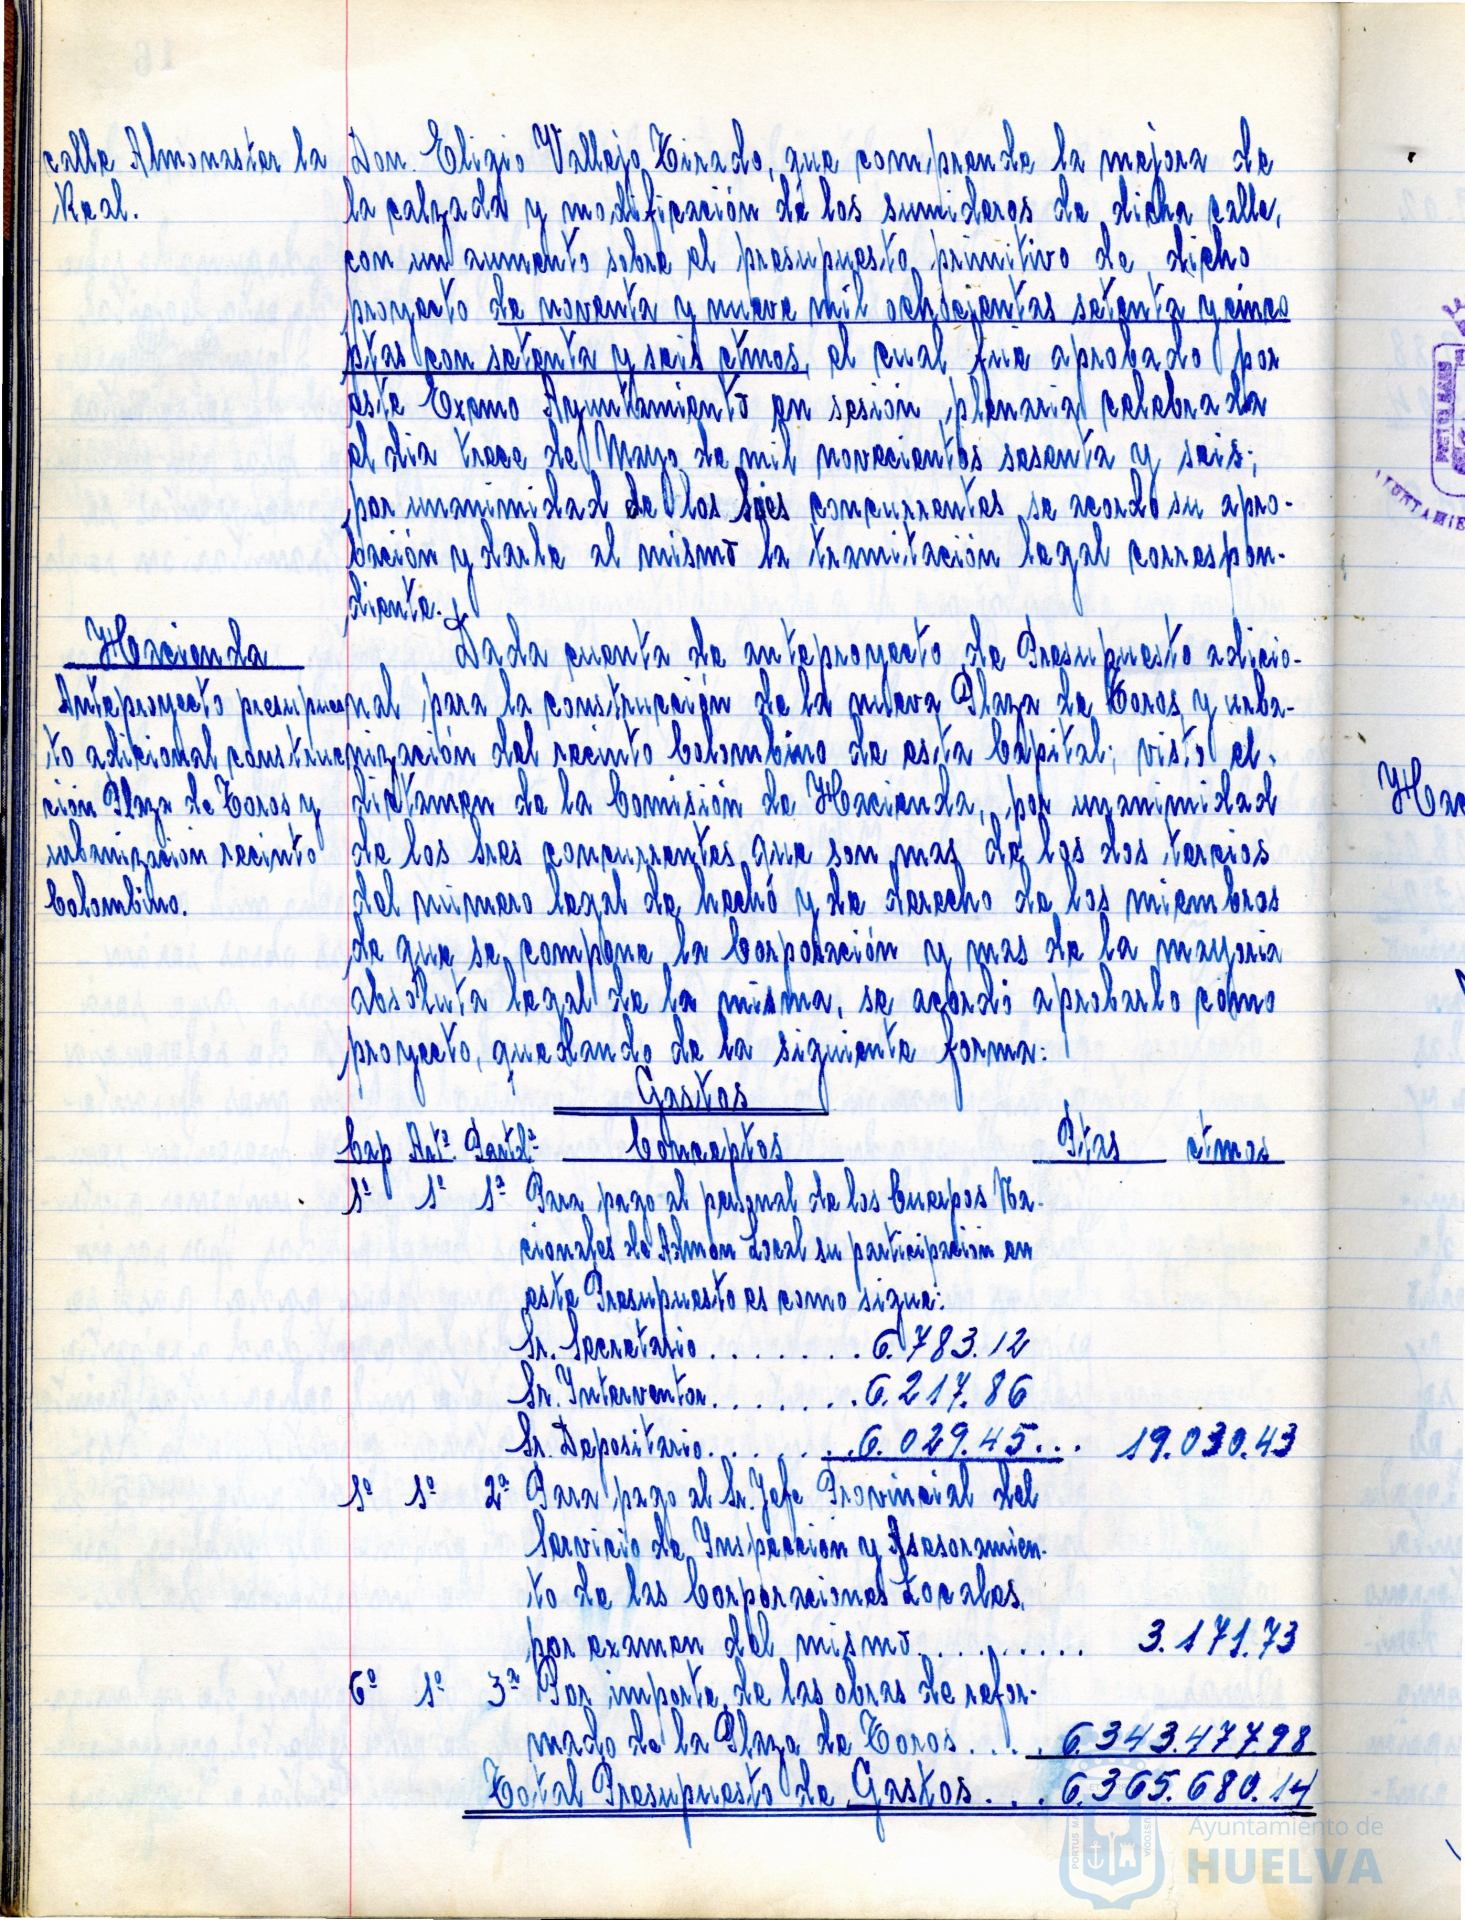 calle Almonaster la
Real.
Don Eligio Vallejo Tirado, que comprende la mejora de
la calzada y modificación de los sumideros de dicha calle,
con un aumento sobre el presupuesto primitivo de dicho
proyecto de noventa y nueve mil ochocientas setenta y cinco
ptas con setenta y seis ctmos, el cual fue aprobado por
este Excmo Ayuntamiento en sesión plenaria celebrada
el dia trece de Mayo de mil novecientos sesenta y seis;
por unanimidad de los Sres concurrentes se acordó su apro-
bación y darle al mismo la tramitación legal correspon-
diente.
Hacienda
Anteproyecto presupues
to adicional construc
ción Plaza de Toros y
urbanización recinto
Colombino.
Dada cuenta de anteproyecto de Presupuesto adicio-
nal para la construcción de la nueva Plaza de Toros y urba-
nización del recinto Colombino de esta Capital; visto el
dictamen de la Comisión de Hacienda, por unanimidad
de los Sres concurrentes que son mas de los dos tercios
del número legal de hecho y de derecho de los miembros
de que se compone la Corporación y mas de la mayoria
absoluta legal de la misma, se acordó aprobarlo como
proyecto, quedando de la siguiente forma:
Gastos
Cap Artº. Partdª Conceptos Ptas ctmos
1º 1º 1ª Para pago al personal de los Cuerpos Na-
cionales de Admon Local su participación en
este Presupuesto es como sigue:
Sr. Secretario ........ 6.783.12
Sr. Interventor ....... 6.217.86
Sr. Depositario ....... 6.029.45 ... 19.030.43
1º 1º 2ª Para pago al Sr. Jefe Provincial del
Servicio de Inspección y Asesoramien-
to de las Corporaciones Locales,
por examen del mismo ......... 3.171.73
6º 1º 3ª Por importe de las obras de refor-
mado de la Plaza de Toros .... 6.343.477.98
Total Presupuesto de Gastos ... 6.365.680.14
Hac
Ayuntamiento de
HUELVA